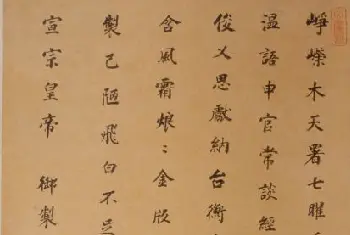 崢嶸木天署七曜
溫語申官常談經
俊乂思獻納台衡
含風霜煥：金版
製已陋飛白不足
宣宗皇帝 御製